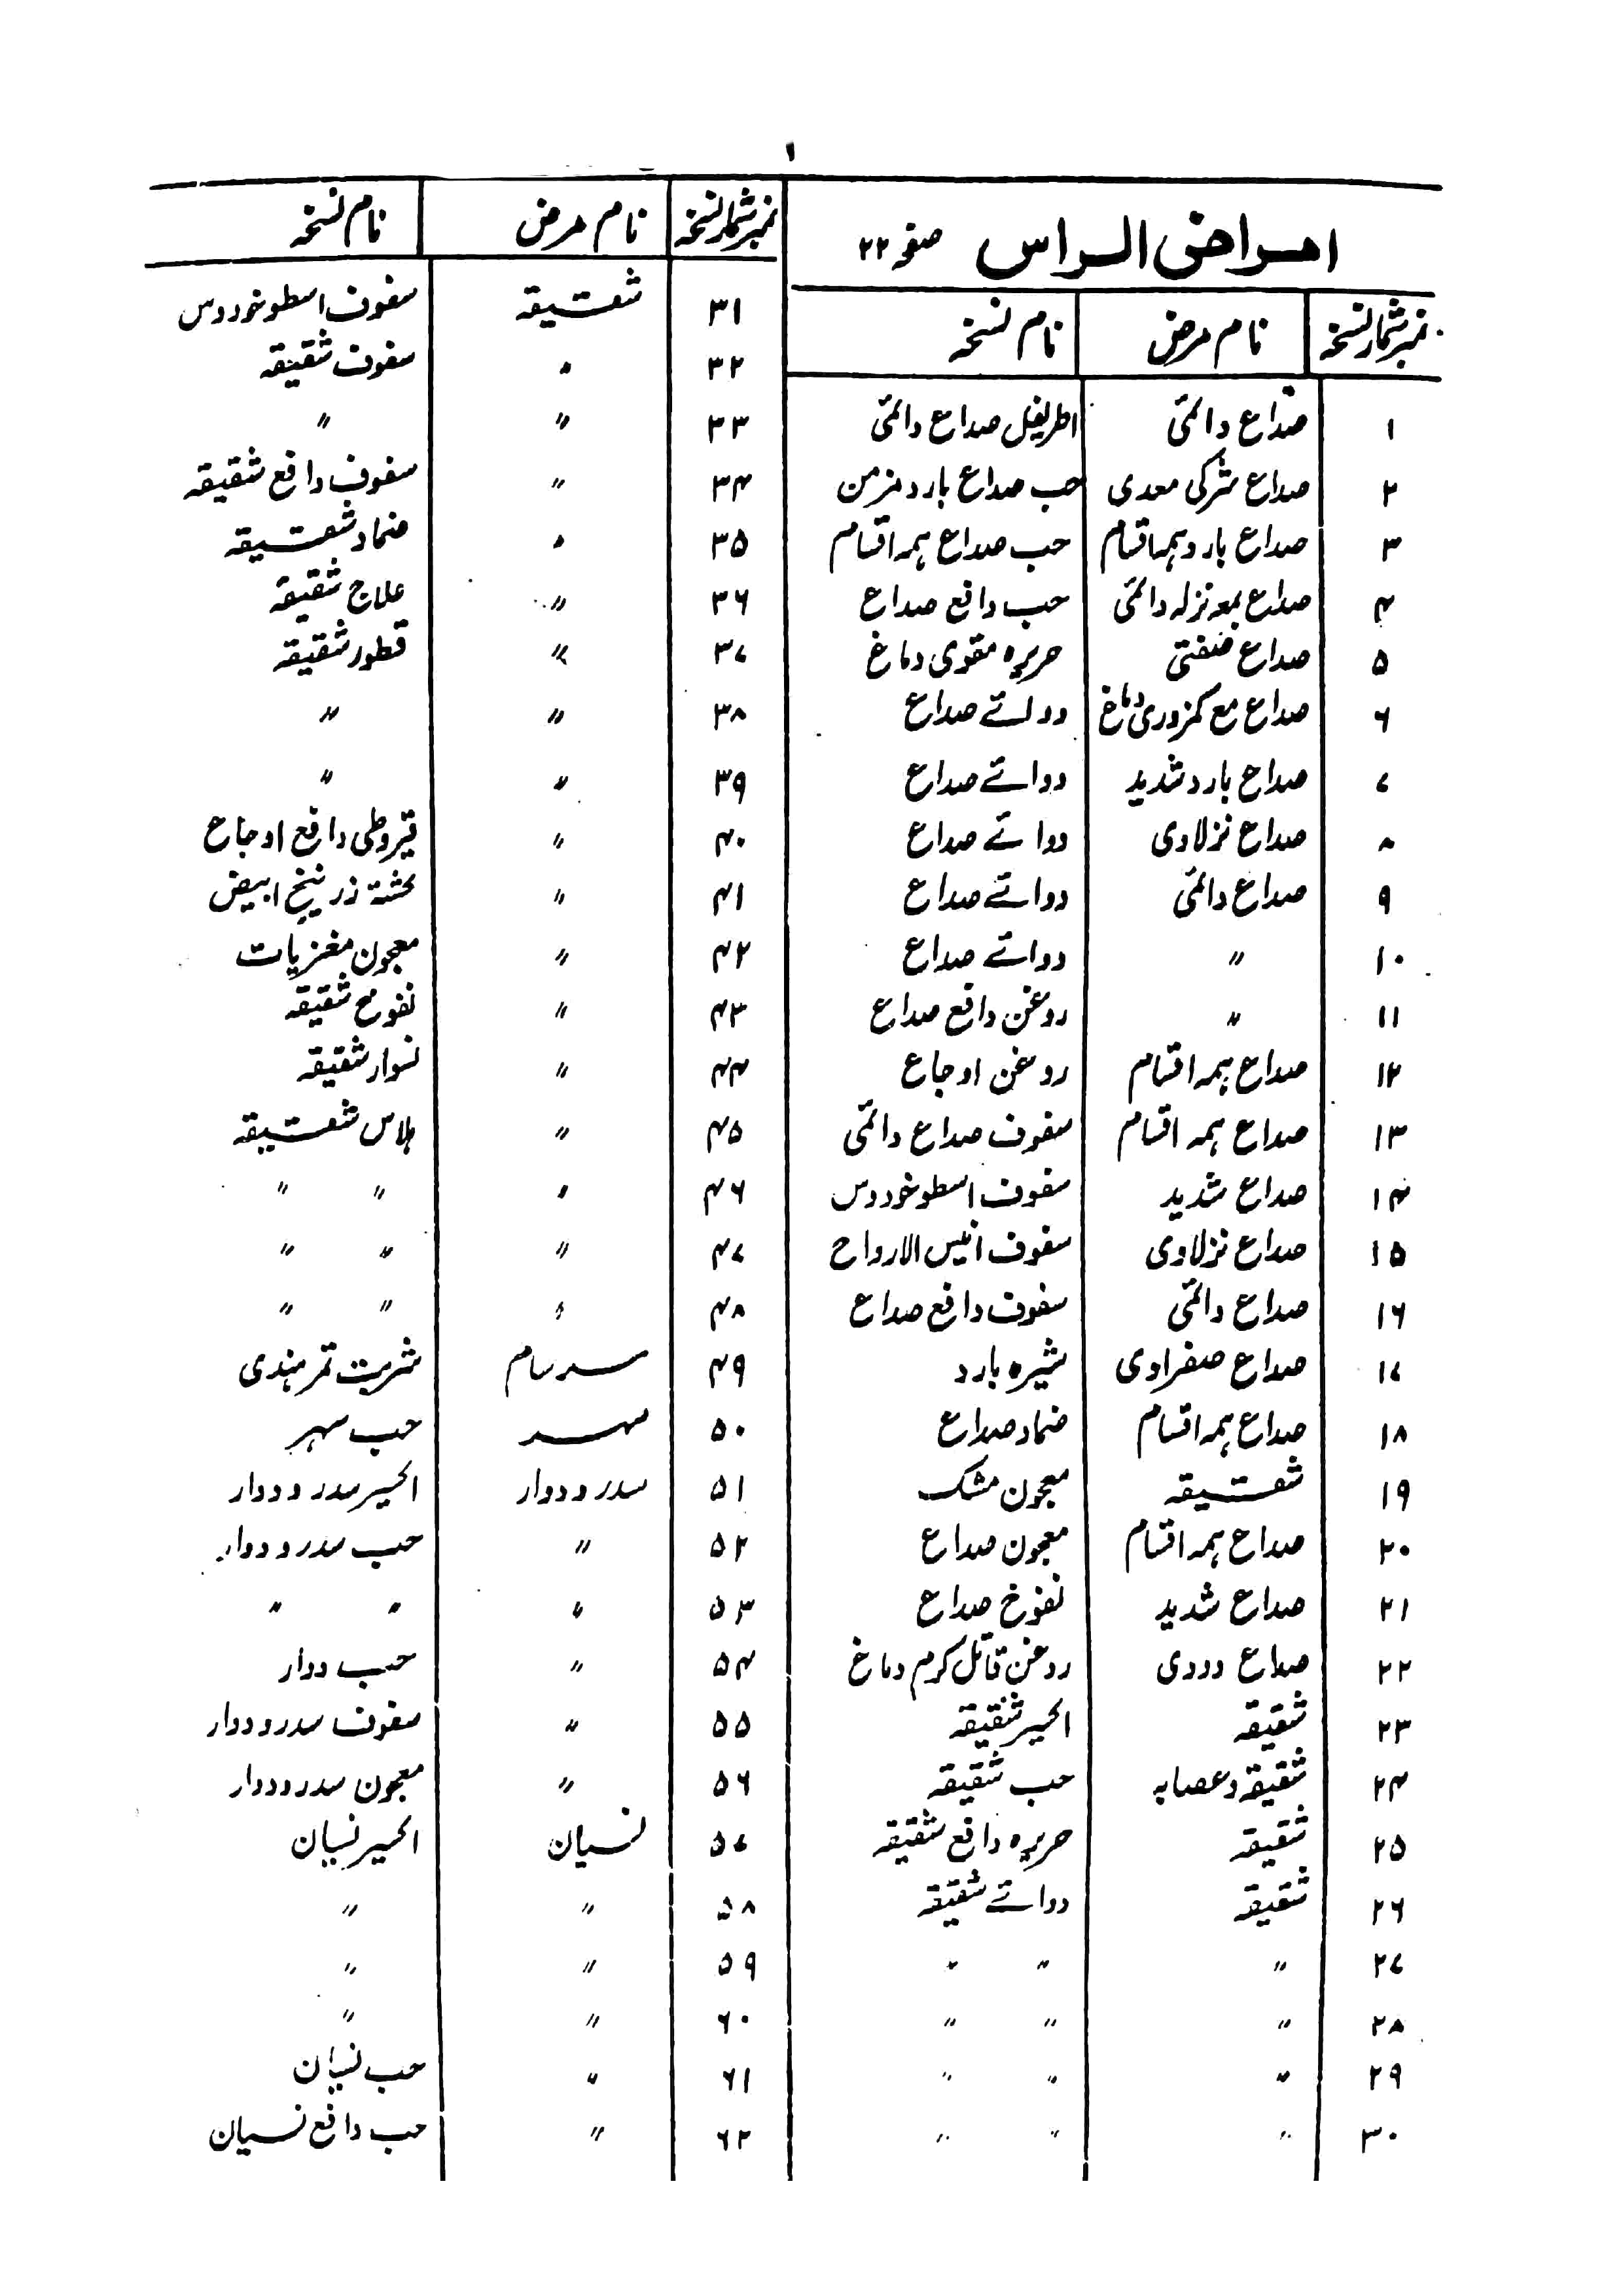 ۱
امراض الراس صفحہ ۲۲
نمبر شمار نسخہ نام مرض نام نسخہ
۱ صداع دائمی اطریفل صداع دائمی
۲ صداع شرکی معدی حب صداع بارد مزمن
۳ صداع بارد ہمہ اقسام حب صداع ہمہ اقسام
۴ صداع بمعہ نزلہ دائمی حب دافع صداع
۵ صداع ضعفتی حریرہ مقوی دماغ
۶ صداع مع کمزوری دماغ دوائے صداع
۷ صداع بارد شدید دوائے صداع
۸ صداع نزلاوی دوائے صداع
۹ صداع دائمی دوائے صداع
۱۰ 〃 دوائے صداع
۱۱ 〃 روغن دافع صداع
۱۲ صداع ہمہ اقسام روغن اوجاع
۱۳ صداع ہمہ اقسام سفوف صداع دائمی
۱۴ صداع شدید سفوف اسطوخودوس
۱۵ صداع نزلاوی سفوف انیس الارواح
۱۶ صداع دائمی سفوف دافع صداع
۱۷ صداع صفراوی شیرہ بارد
۱۸ صداع ہمہ اقسام ضماد صداع
۱۹ شقیقہ معجون مشک
۲۰ صداع ہمہ اقسام معجون صداع
۲۱ صداع شدید نفوخ صداع
۲۲ صداع دودی روغن قاتل کرم دماغ
۲۳ شقیقہ اکسیر شقیقہ
۲۴ شقیقہ وعصابہ حب شقیقہ
۲۵ شقیقہ حریرہ دافع شقیقہ
۲۶ شقیقہ دوائے شقیقہ
۲۷ 〃 〃 〃
۲۸ 〃 〃 〃
۲۹ 〃 〃 〃
۳۰ 〃 〃 〃
نمبر شمار نسخہ نام مرض نام نسخہ
۳۱ شقیقہ سفوف اسطوخودوس
۳۲ 〃 سفوف شقیقہ
۳۳ 〃 〃
۳۴ 〃 سفوف دافع شقیقہ
۳۵ 〃 ضماد شقیقہ
۳۶ 〃 علاج شقیقہ
۳۷ 〃 قطور شقیقہ
۳۸ 〃 〃
۳۹ 〃 〃
۴۰ 〃 قیروطی دافع اوجاع
۴۱ 〃 کشتہ زرنیخ ابیض
۴۲ 〃 معجون مغزیات
۴۳ 〃 نفوخ شقیقہ
۴۴ 〃 نسوار شقیقہ
۴۵ 〃 ہلاس شقیقہ
۴۶ 〃 〃 〃
۴۷ 〃 〃 〃
۴۸ 〃 〃 〃
۴۹ سرسام شربت تمر ہندی
۵۰ سہر حب سہر
۵۱ سدر و دوار اکسیر سدر و دوار
۵۲ 〃 حب سدر و دوار
۵۳ 〃 〃 〃
۵۴ 〃 حب دوار
۵۵ 〃 سفوف سدر و دوار
۵۶ 〃 معجون سدر و دوار
۵۷ نسیان اکسیر نسیان
۵۸ 〃 〃
۵۹ 〃 〃
۶۰ 〃 〃
۶۱ 〃 حب نسیان
۶۲ 〃 حب دافع نسیان